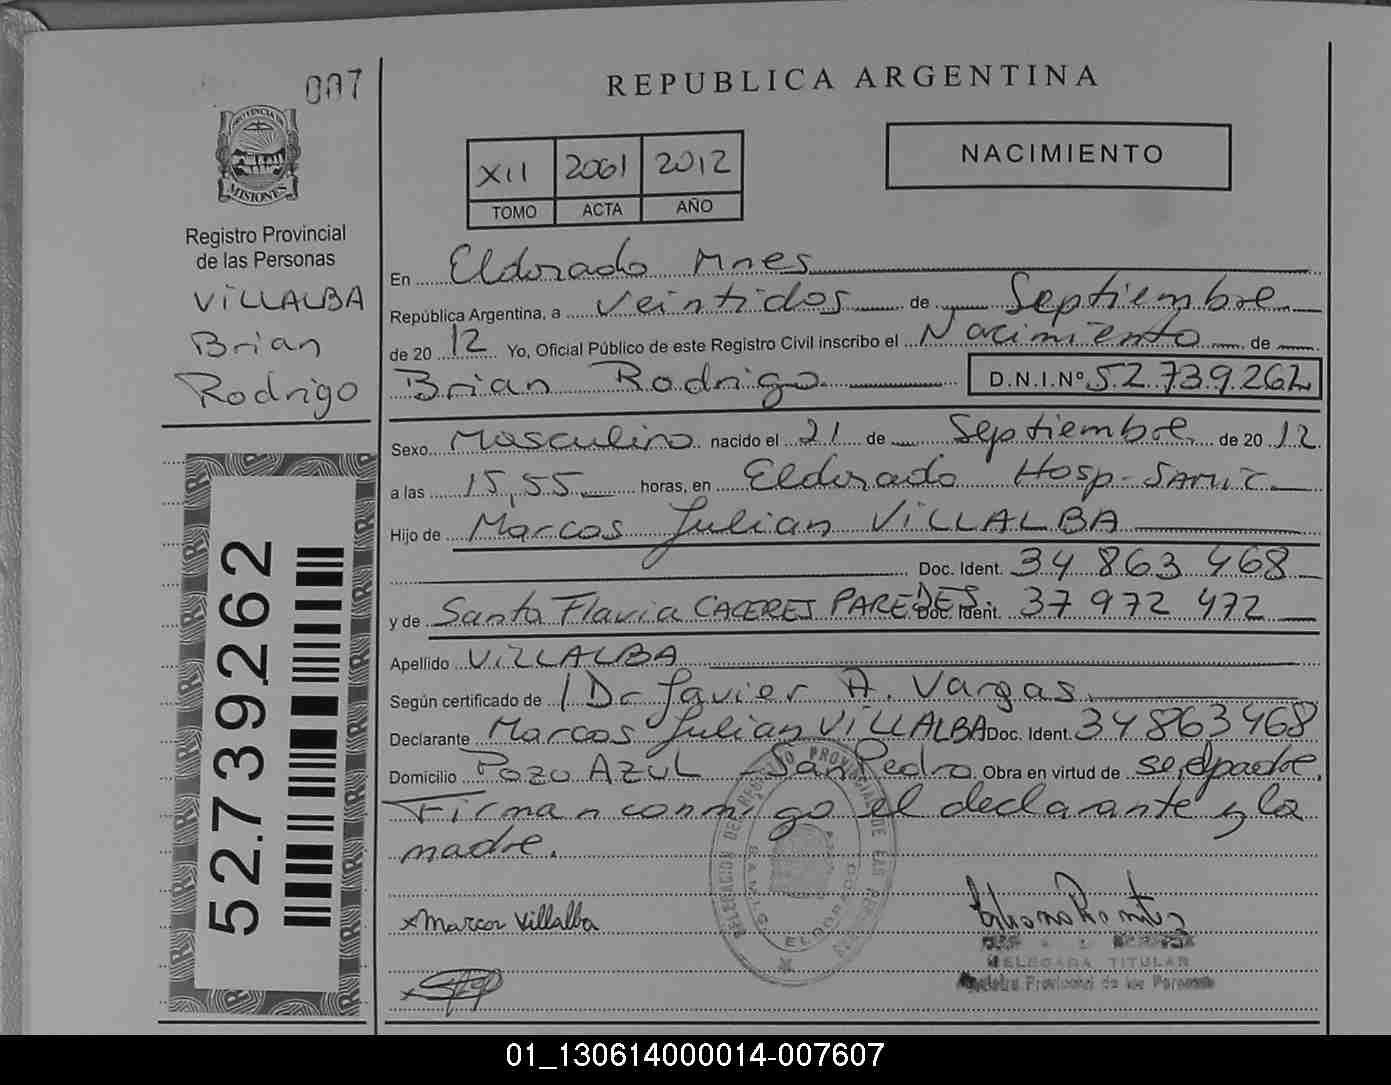 007
PROVINCIA DE
MISIONES
Registro Provincial
de las Personas
VILLALBA
Brian
Rodrigo
52.739.262
REPUBLICA ARGENTINA
XII 2061 2012
TOMO ACTA AÑO
NACIMIENTO
En Eldorado Mnes
República Argentina, a veintidos de Septiembre
de 20 12 Yo, Oficial Público de este Registro Civil inscribo el Nacimiento de
Brian Rodrigo D.N.I.Nº 52.739.262
Sexo Masculino nacido el 21 de Septiembre de 20 12
a las 15,55 horas, en Eldorado Hosp-SAMIC
Hijo de Marcos Julian VILLALBA
Doc. Ident. 34 863 468
y de Santa Flavia CACERES PAREDES Doc. Ident. 37 972 472
Apellido VILLALBA
Según certificado de Dr Javier A. Vargas
Declarante Marcos Julian VILLALBA Doc. Ident. 34863468
Domicilio Pozo AZUL - San Pedro Obra en virtud de
Firman conmigo el declarante y la
madre.
x Marcos Villalba
ELDORADO
DELEGADA TITULAR
Registro Provincial de las Personas
01_130614000014-007607